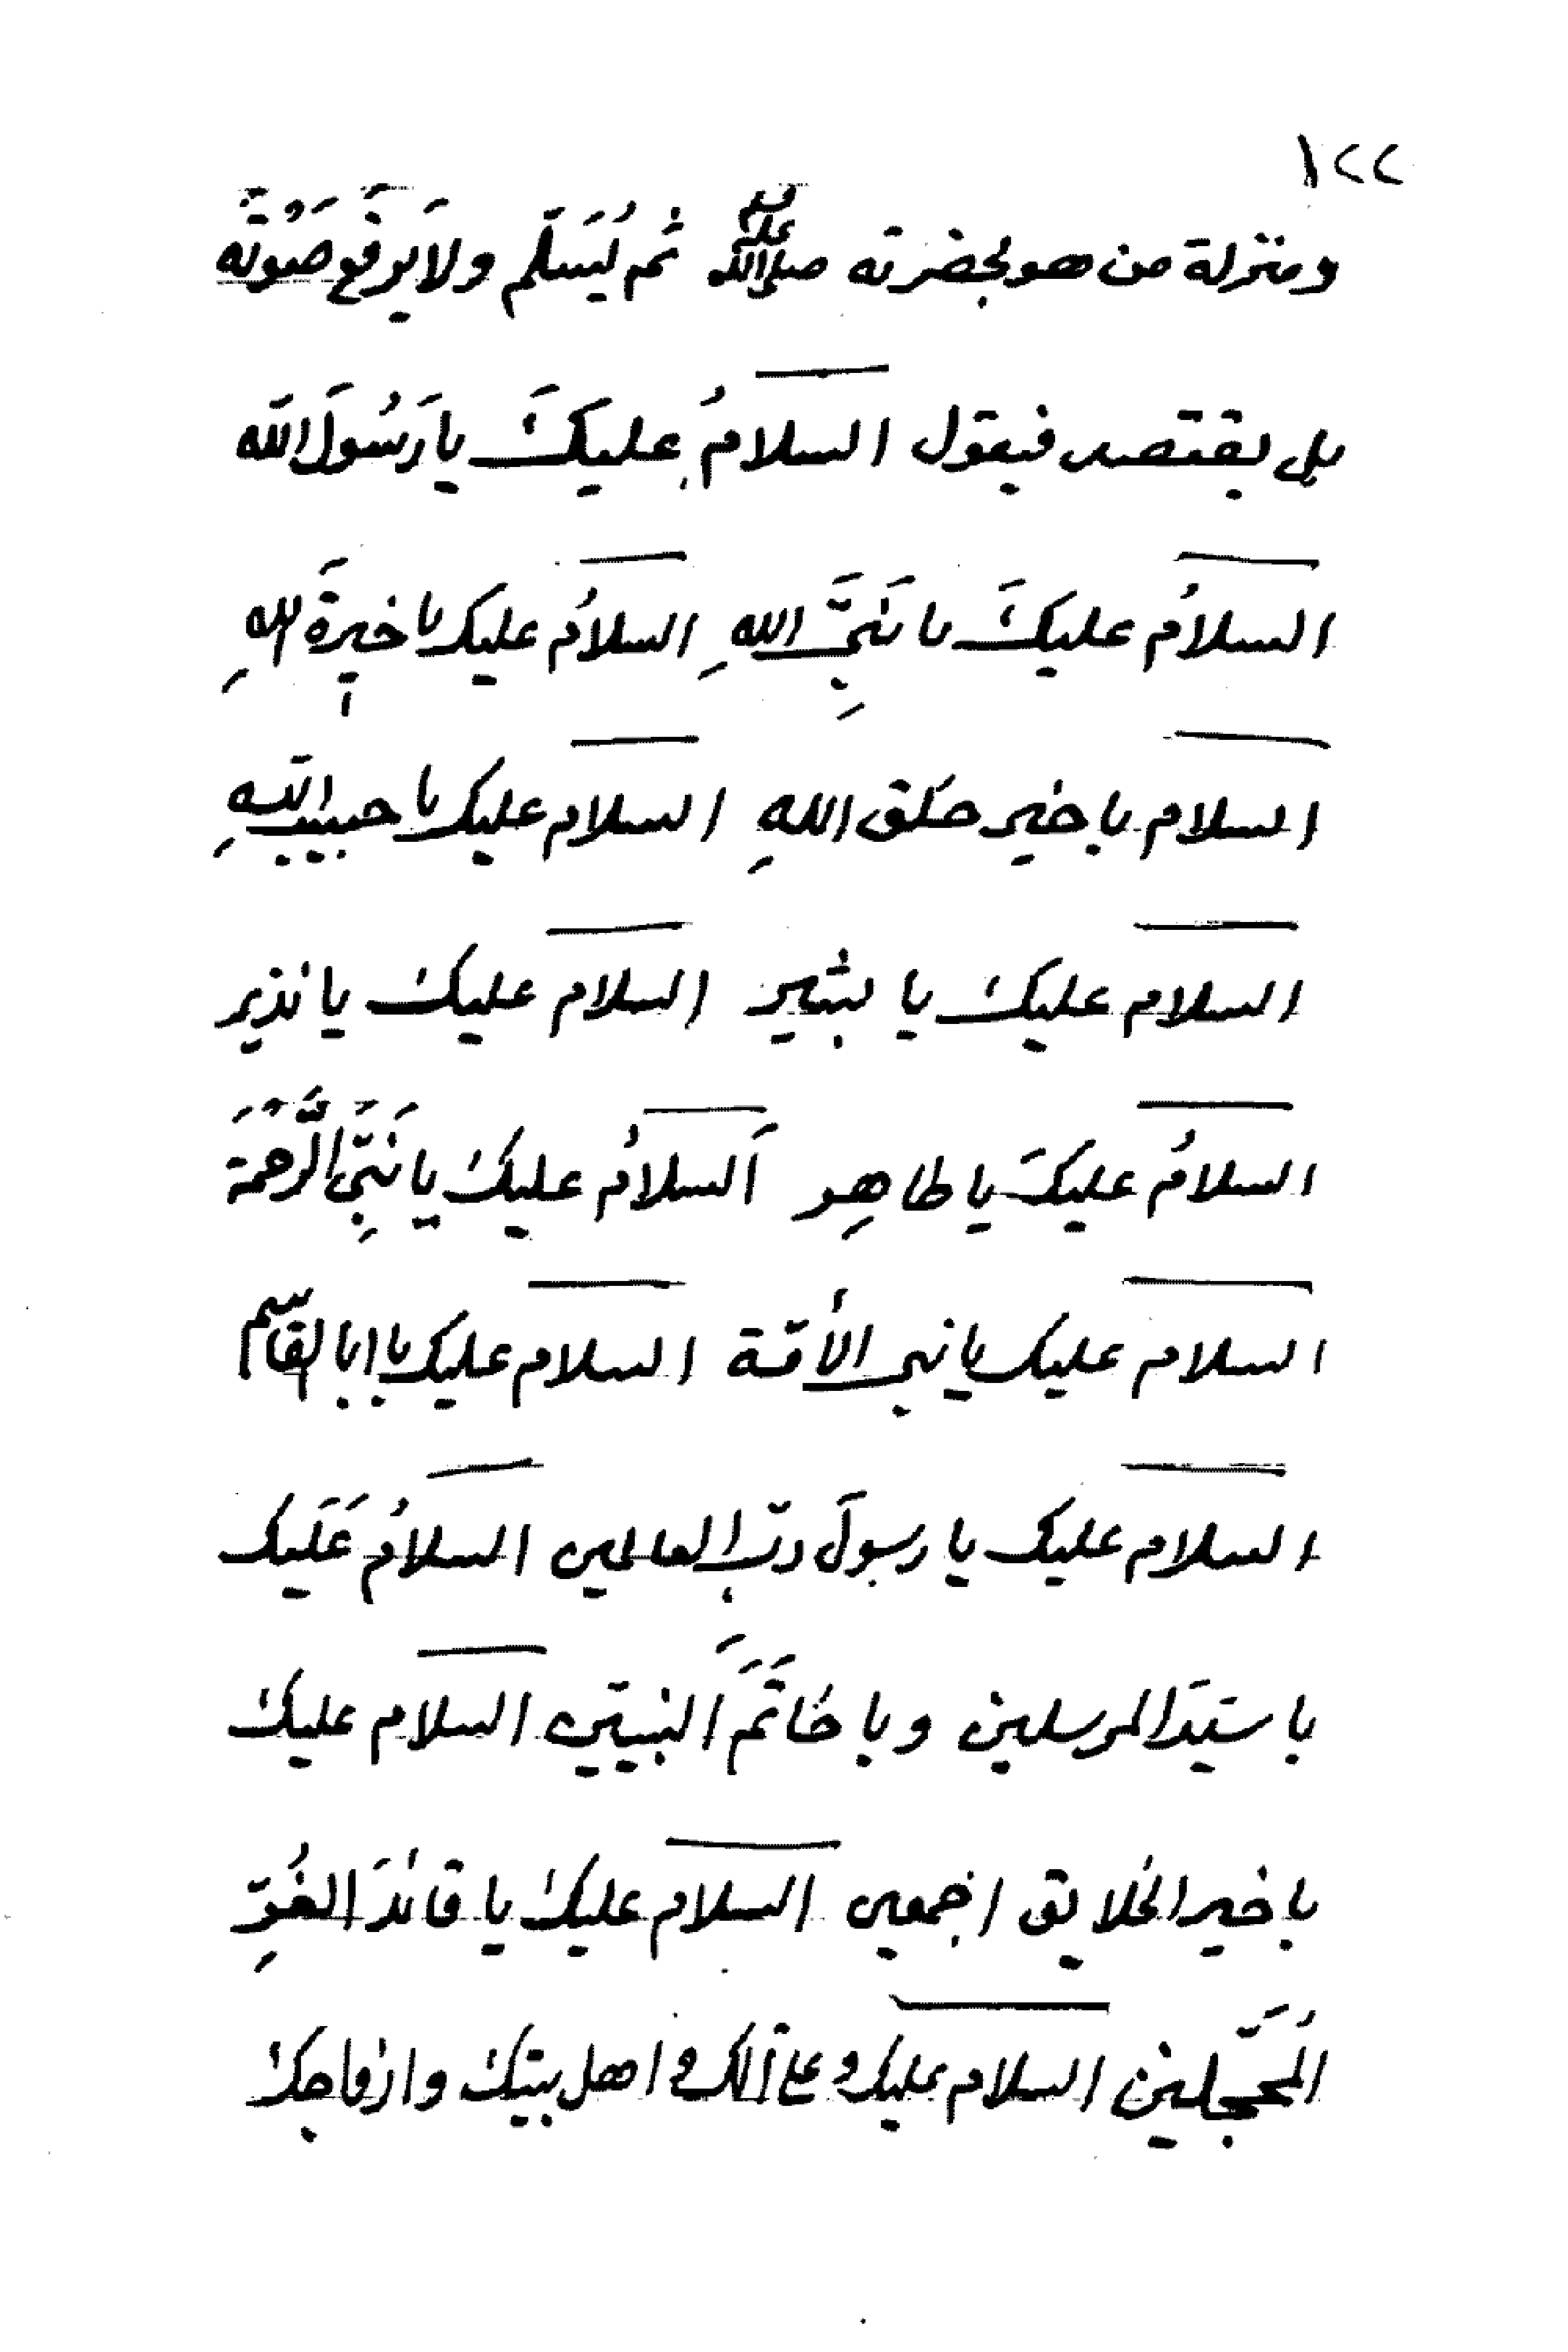 ١٢٢
ومنزلة من هو بحضرته صلى الله عليه وسلم ثم يُسَلّم ولَا يَرفَع صَوْتَه
بل يقتصد فيقول السلامُ عليكَ يا رَسُولَ الله
السلامُ عليكَ يا نَبِيَّ اللهِ السلامُ عليك يا خيرةَ اللهِ
السلام يا خير خلق اللهِ السلام عليك يا حبيب اللهِ
السلام عليك يا بشير السلام عليك يا نذير
السلامُ عليكَ يا طاهِر اَلسلامُ عليك يا نَبِيَّ الرَّحْمَة
السلام عليك يا نبي الأمّة السلام عليك يا ابا القاسم
السلام عليك يا رسولَ ربِّ العالمين السلامُ عَلَيك
يا سيّدَ المرسلين ويا خاتَمَ النبيّين السلام عليك
يا خير الخلايق اجمعين السلام عليك يا قائدَ الغُرِّ
المُحَجَّلين السلام عليك وعلى آلك واهل بيتك وازواجك